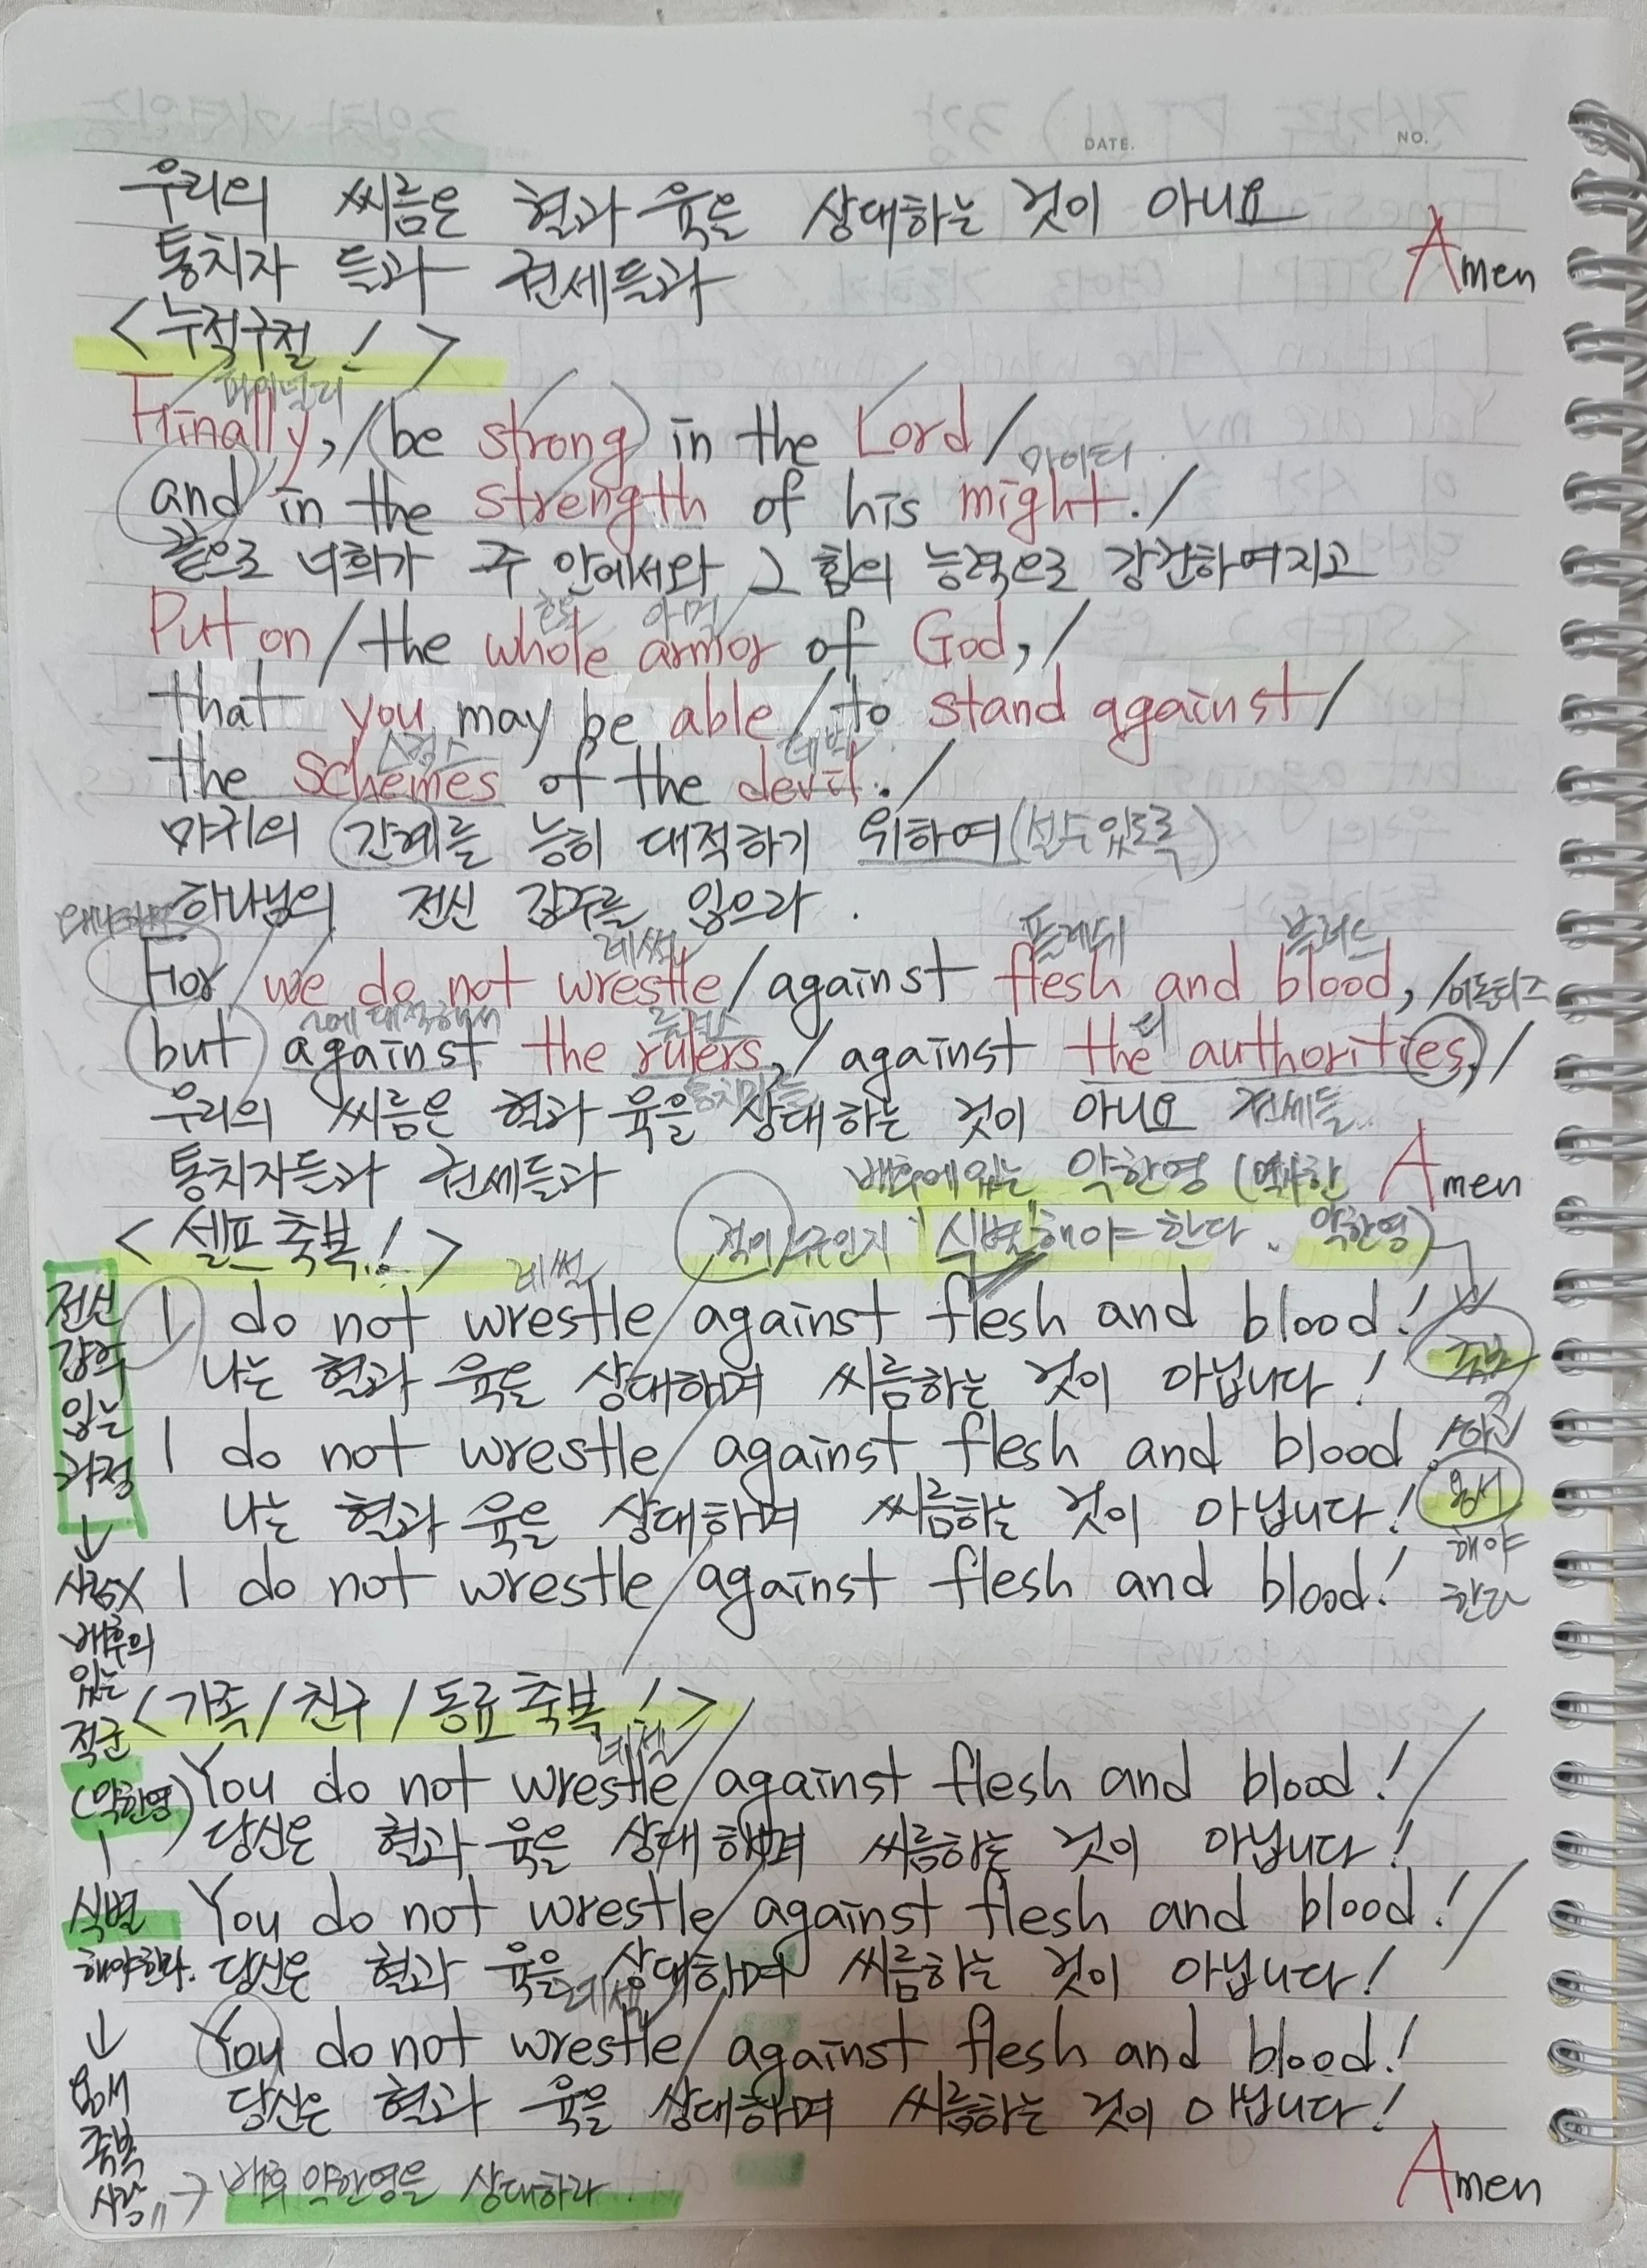 DATE. NO.
우리의 씨름은 혈과 육을 상대하는 것이 아니요
통치자 들과 권세들과
Amen
<누적구절!>
파이널리
Finally, / (be strong) in the Lord /
마이티
(and) in the strength of his might. /
끝으로 너희가 주 안에서와 그 힘의 능력으로 강건하여지고
호울 아멀
Put on / the whole armor of God, /
that you may be able / to stand against /
스킴스 데빌
the schemes of the devil. /
마귀의 간계를 능히 대적하기 위하여 (설수있도록)
하나님의 전신 갑주를 입으라.
왜냐하면 레썰 플레쉬 블러드
For / we do not wrestle / against flesh and blood, /
~에 대적해서 룰러스 디 어토리티즈
(but) against the rulers, / against the authorities, /
통치자들 권세들
우리의 씨름은 혈과 육을 상대하는 것이 아니요
통치자들과 권세들과
Amen
배후에 있는 악한영 (역사한 악한영)
적이 누구인지 "식별"해야 한다.
<셀프 축복!>
레썰
I do not wrestle / against flesh and blood!
나는 혈과 육을 상대하며 씨름하는 것이 아닙니다!
I do not wrestle / against flesh and blood!
나는 혈과 육을 상대하며 씨름하는 것이 아닙니다!
I do not wrestle / against flesh and blood!
축복
하고
용서
해야
한다
<가족 / 친구 / 동료 축복!>
레썰
You do not wrestle / against flesh and blood! /
당신은 혈과 육을 상대하며 씨름하는 것이 아닙니다!
You do not wrestle / against flesh and blood! /
당신은 혈과 육을 상대하며 씨름하는 것이 아닙니다!
레썰
You do not wrestle / against flesh and blood!
당신은 혈과 육을 상대하며 씨름하는 것이 아닙니다!
Amen
전신
갑주
입는
과정
↓
사람X
배후의
있는
적군
(악한영)
식별
해야한다.
↓
용서
축복
사랑
→ 배후 악한영을 상대하라